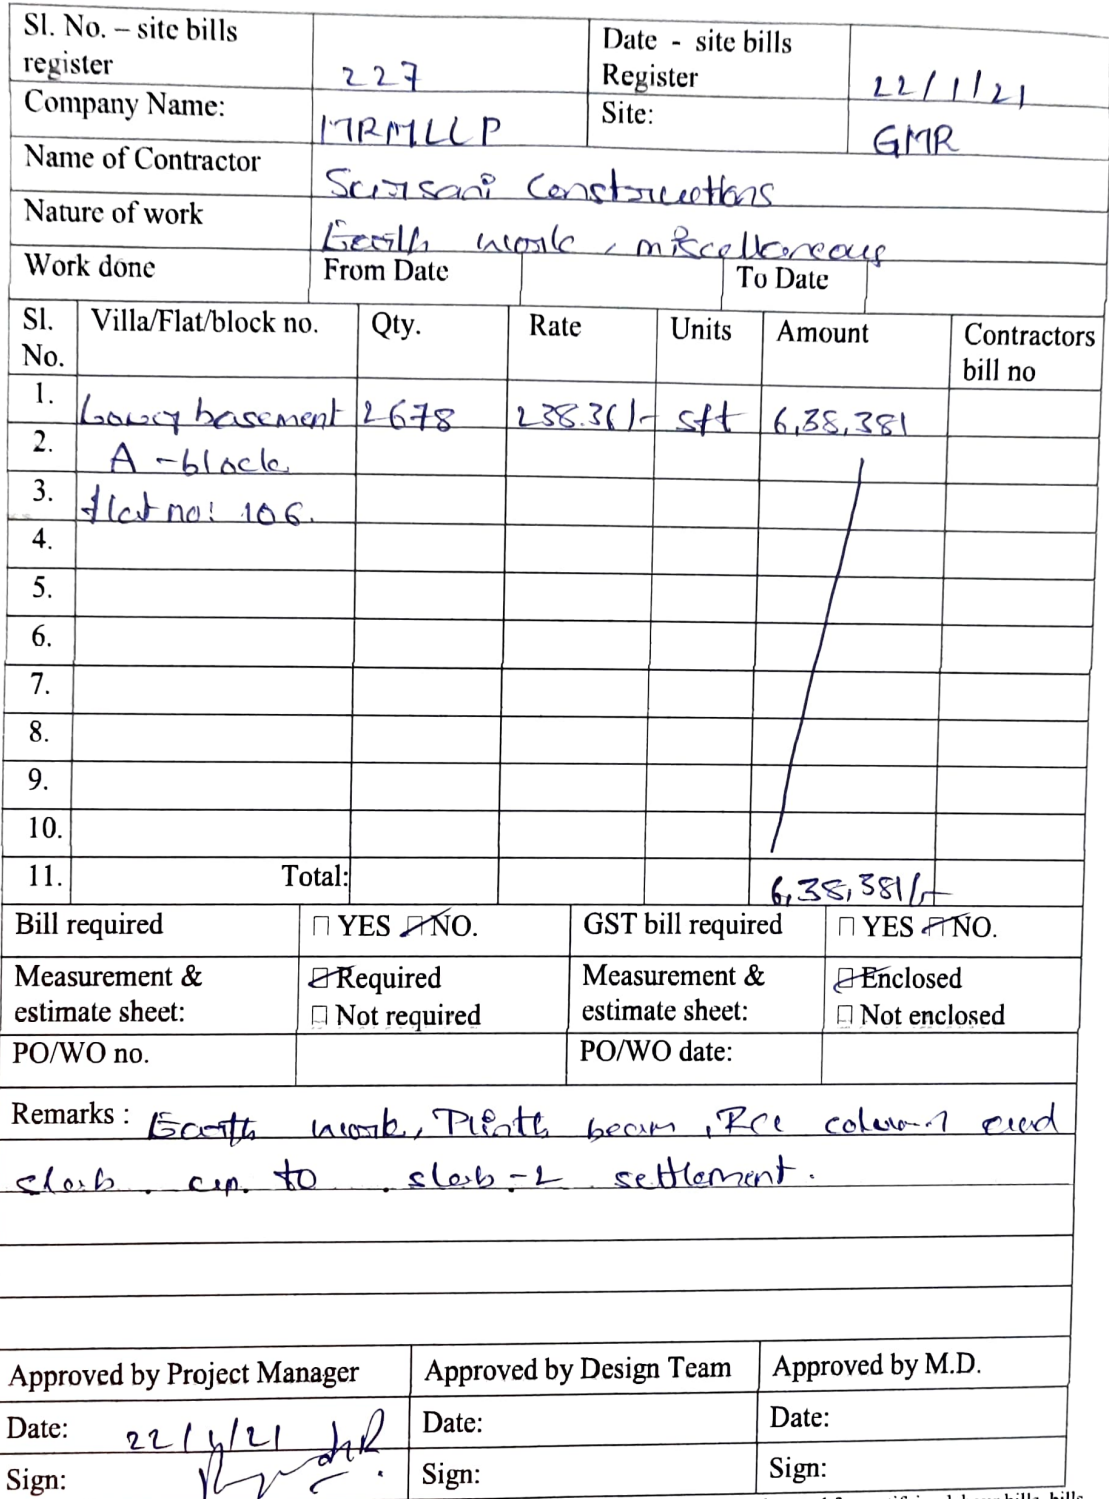 Sl. No. – site bills register 227 Date - site bills Register 22/1/21
Company Name: MRMLLP Site: GMR
Name of Contractor Sarsani Constructions
Nature of work Earth work, miscellaneous
Work done From Date To Date
Sl. No. Villa/Flat/block no. Qty. Rate Units Amount Contractors bill no
1. Lower basement 2678 238.36/- sft 6,38,381
2. A-block
3. flat no: 106.
4.
5.
6.
7.
8.
9.
10.
11. Total: 6,38,381/-
Bill required YES NO. GST bill required YES NO.
Measurement & estimate sheet: Required Measurement & estimate sheet: Enclosed
Not required Not enclosed
PO/WO no. PO/WO date:
Remarks : Earth work, Plinth beam, RCC column and
slab. up. to slab-2 settlement.
Approved by Project Manager Approved by Design Team Approved by M.D.
Date: 22/1/21 Date: Date:
Sign: Sign: Sign: